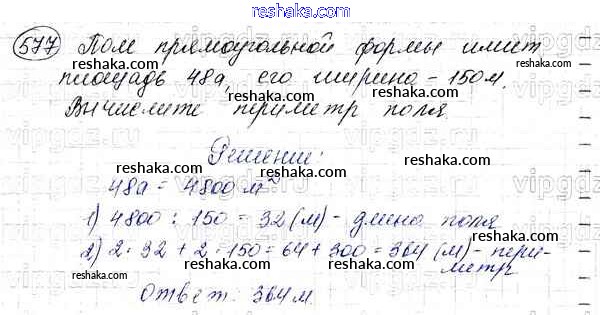 reshaka.com
577 Поле прямоугольной формы имеет
reshaka.com
площадь 48а, его ширина - 150м.
reshaka.com
Вычислите периметр поля
reshaka.com
Решение:
reshaka.com
48а = 4800 м²
reshaka.com
1) 4800 : 150 = 32 (м) - длина поля
reshaka.com
2) 2 · 32 + 2 · 150 = 64 + 300 = 364 (м) - пери-
метр
reshaka.com
Ответ: 364 м.
reshaka.com